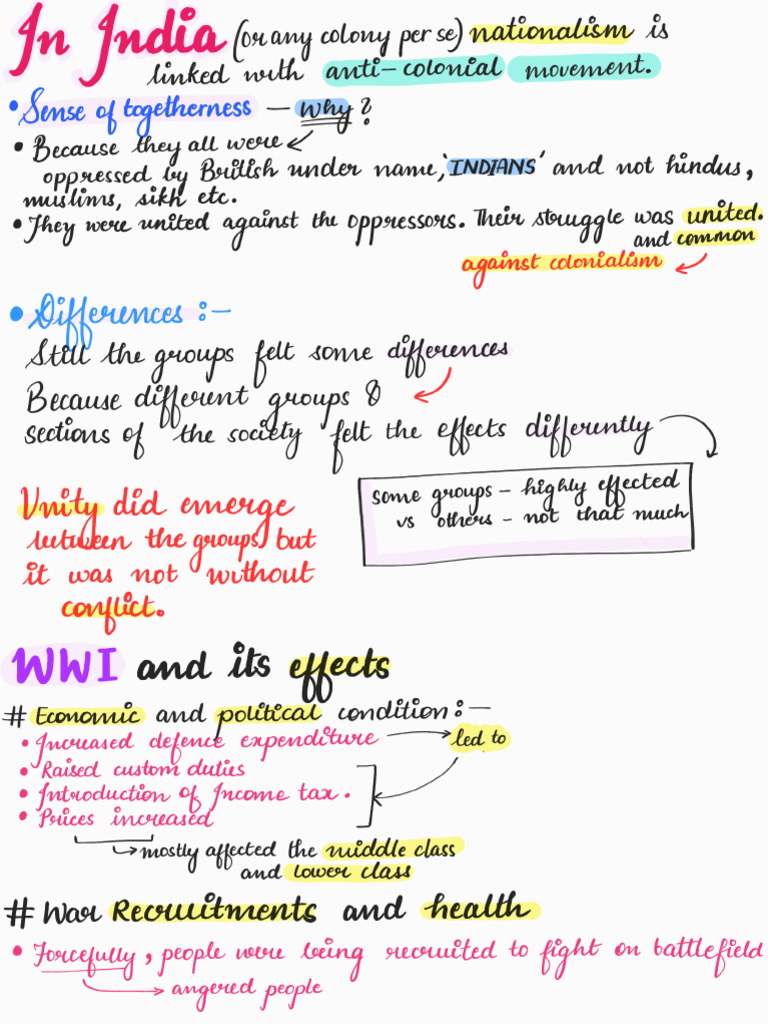 In India (or any colony per se) nationalism is
linked with anti-colonial movement.
• Sense of togetherness — Why?
• Because they all were
oppressed by British under name, 'INDIANS' and not hindus,
muslims, sikh etc.
• They were united against the oppressors. Their struggle was united.
and common
against colonialism
• Differences :-
Still the groups felt some differences
Because different groups &
sections of the society felt the effects differently
some groups - highly effected
vs others - not that much
Unity did emerge
between the groups, but
it was not without
conflict.
WWI and its effects
# Economic and political condition :-
• Increased defence expenditure led to
• Raised custom duties
• Introduction of Income tax.
• Prices increased
mostly affected the middle class
and lower class
# War Recruitments and health
• Forcefully, people were being recruited to fight on battlefield
angered people